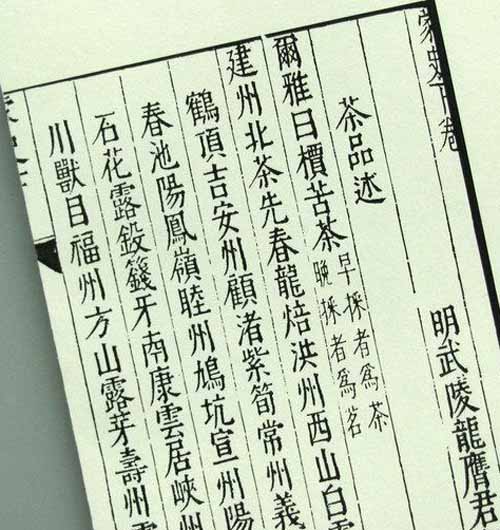 蒙史下卷
明武陵龍膺君
茶品述
爾雅曰檟苦茶
早採者爲茶
晚採者爲茗
建州北茶先春龍焙洪州西山白
鶴頂吉安州顧渚紫筍常州義
春池陽鳳嶺睦州鳩坑宣州陽
石花露鋑籛牙南康雲居峽州
川獸目福州方山露芽壽州